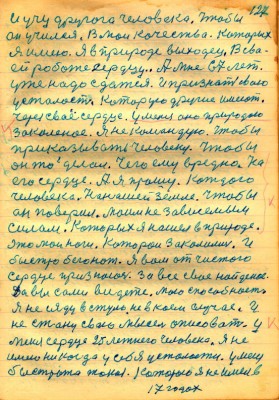 127
и учу другого человека. Чтобы
он учился. В мои качества. Которых
я имею. Я в природе выходец, В сва
ей работе сердцу. А мне 57 лет.
уже надо сдатся. И признать свою
усталость. Которую другие имеют.
через своё сердце. У меня оно природою
закаленое. Я не командую. Чтобы
приказывать человеку. Чтобы
он то делал. Чего ему вредно на
его сердце. А я прошу. Каждого
человека. На нашей земле. Чтобы
он поверил. Моим не зависемым
силам. Которых я нашел в природе.
это мои ноги. Которои закалины. И
быстро бегают. Я вам от чистого
сердце признаюсь. За все свое найденое.
Да вы сами видете. Мою способность.
Я не сяду в стулю не в коем случае. И
не стану свою мысль описовать. у
меня сердце 25 летнего человека. Я не
имею никогда у себя усталости. у меня
быстрота такая. Которою я не имел в
17 годах